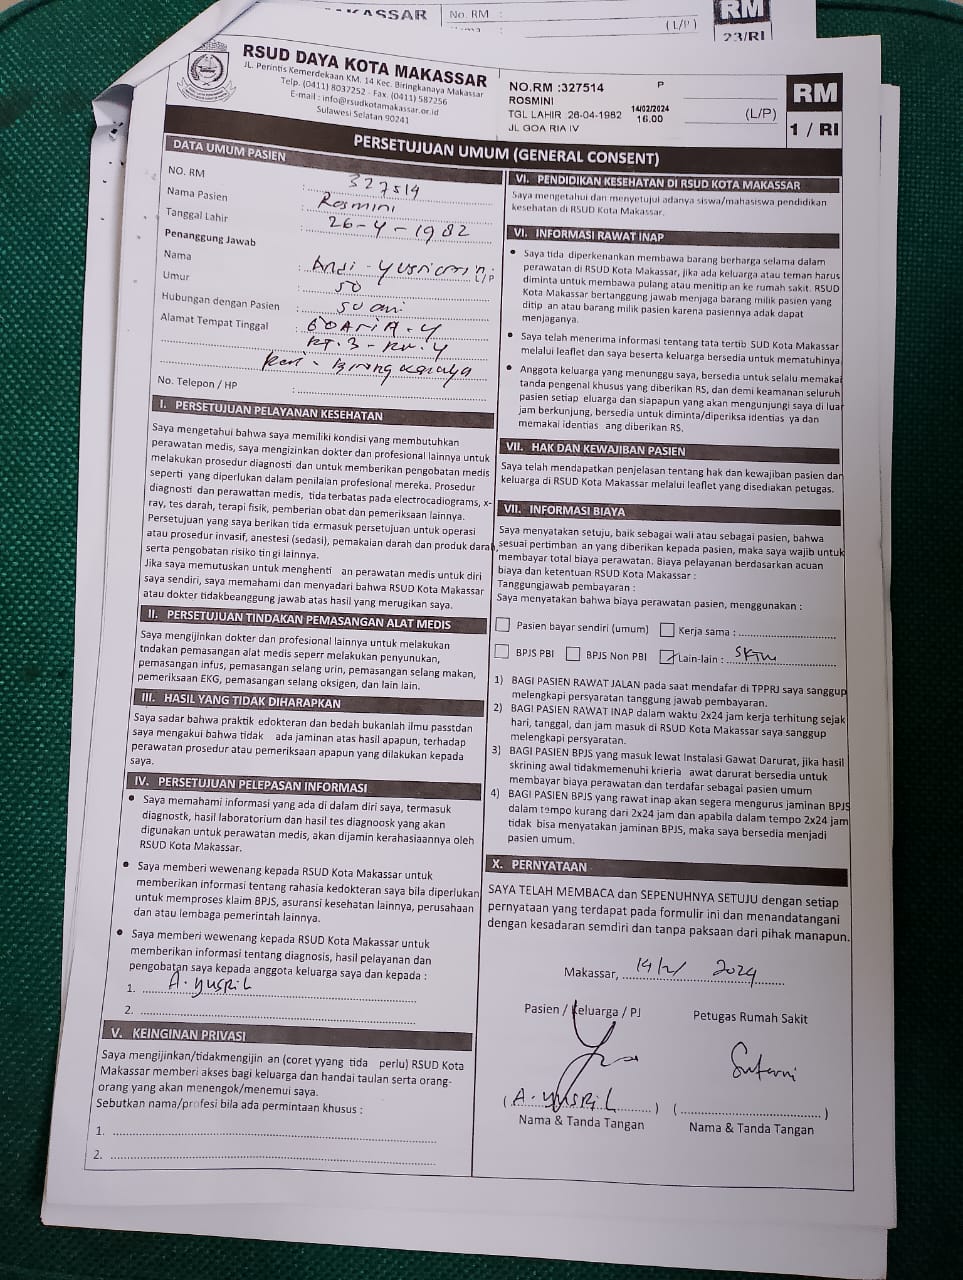 AKASSAR
No. RM :
(L/P)
RM
23/RI
RSUD DAYA KOTA MAKASSAR
JL. Perintis Kemerdekaan KM. 14 Kec. Biringkanaya Makassar
Telp. (0411) 8037252 - Fax. (0411) 587256
E-mail : info@rsudkotamakassar.or.id
Sulawesi Selatan 90241
NO.RM :327514 P
ROSMINI
TGL LAHIR 26-04-1982
JL GOA RIA IV
14/02/2024
16.00
(L/P)
RM
1 / RI
PERSETUJUAN UMUM (GENERAL CONSENT)
DATA UMUM PASIEN
NO. RM : 327514
Nama Pasien : Rosmini
Tanggal Lahir : 26-4-1982
Penanggung Jawab
Nama : L/P
Umur : 50
Hubungan dengan Pasien : suami
Alamat Tempat Tinggal :
RT.3 - RW.4
No. Telepon / HP :
I. PERSETUJUAN PELAYANAN KESEHATAN
Saya mengetahui bahwa saya memiliki kondisi yang membutuhkan
perawatan medis, saya mengizinkan dokter dan profesional lainnya untuk
melakukan prosedur diagnosti dan untuk memberikan pengobatan medis
seperti yang diperlukan dalam penilaian profesional mereka. Prosedur
diagnosti dan perawattan medis, tida terbatas pada electrocadiograms, x-
ray, tes darah, terapi fisik, pemberian obat dan pemeriksaan lainnya.
Persetujuan yang saya berikan tida ermasuk persetujuan untuk operasi
atau prosedur invasif, anestesi (sedasi), pemakaian darah dan produk darah,
serta pengobatan risiko tin gi lainnya.
Jika saya memutuskan untuk menghenti an perawatan medis untuk diri
saya sendiri, saya memahami dan menyadari bahwa RSUD Kota Makassar
atau dokter tidakbeanggung jawab atas hasil yang merugikan saya.
II. PERSETUJUAN TINDAKAN PEMASANGAN ALAT MEDIS
Saya mengijinkan dokter dan profesional lainnya untuk melakukan
tndakan pemasangan alat medis seperr melakukan penyunukan,
pemasangan infus, pemasangan selang urin, pemasangan selang makan,
pemeriksaan EKG, pemasangan selang oksigen, dan lain lain.
III. HASIL YANG TIDAK DIHARAPKAN
Saya sadar bahwa praktik edokteran dan bedah bukanlah ilmu passtdan
saya mengakui bahwa tidak ada jaminan atas hasil apapun, terhadap
perawatan prosedur atau pemeriksaan apapun yang dilakukan kepada
saya.
IV. PERSETUJUAN PELEPASAN INFORMASI
• Saya memahami informasi yang ada di dalam diri saya, termasuk
diagnostk, hasil laboratorium dan hasil tes diagnoosk yang akan
digunakan untuk perawatan medis, akan dijamin kerahasiaannya oleh
RSUD Kota Makassar.
• Saya memberi wewenang kepada RSUD Kota Makassar untuk
memberikan informasi tentang rahasia kedokteran saya bila diperlukan
untuk memproses klaim BPJS, asuransi kesehatan lainnya, perusahaan
dan atau lembaga pemerintah lainnya.
• Saya memberi wewenang kepada RSUD Kota Makassar untuk
memberikan informasi tentang diagnosis, hasil pelayanan dan
pengobatan saya kepada anggota keluarga saya dan kepada :
1. A. YUSRIL
2.
V. KEINGINAN PRIVASI
Saya mengijinkan/tidakmengijin an (coret yyang tida perlu) RSUD Kota
Makassar memberi akses bagi keluarga dan handai taulan serta orang-
orang yang akan menengok/menemui saya.
Sebutkan nama/profesi bila ada permintaan khusus :
1.
2.
VI. PENDIDIKAN KESEHATAN DI RSUD KOTA MAKASSAR
Saya mengetahui dan menyetujui adanya siswa/mahasiswa pendidikan
kesehatan di RSUD Kota Makassar.
VI. INFORMASI RAWAT INAP
• Saya tida diperkenankan membawa barang berharga selama dalam
perawatan di RSUD Kota Makassar, jika ada keluarga atau teman harus
diminta untuk membawa pulang atau menitip an ke rumah sakit. RSUD
Kota Makassar bertanggung jawab menjaga barang milik pasien yang
ditip an atau barang milik pasien karena pasiennya adak dapat
menjaganya.
• Saya telah menerima informasi tentang tata tertib SUD Kota Makassar
melalui leaflet dan saya beserta keluarga bersedia untuk mematuhinya
• Anggota keluarga yang menunggu saya, bersedia untuk selalu memakai
tanda pengenal khusus yang diberikan RS, dan demi keamanan seluruh
pasien setiap eluarga dan siapapun yang akan mengunjungi saya di luar
jam berkunjung, bersedia untuk diminta/diperiksa identias ya dan
memakai identias ang diberikan RS.
VII. HAK DAN KEWAJIBAN PASIEN
Saya telah mendapatkan penjelasan tentang hak dan kewajiban pasien dan
keluarga di RSUD Kota Makassar melalui leaflet yang disediakan petugas.
VII. INFORMASI BIAYA
Saya menyatakan setuju, baik sebagai wali atau sebagai pasien, bahwa
sesuai pertimban an yang diberikan kepada pasien, maka saya wajib untuk
membayar total biaya perawatan. Biaya pelayanan berdasarkan acuan
biaya dan ketentuan RSUD Kota Makassar :
Tanggungjawab pembayaran :
Saya menyatakan bahwa biaya perawatan pasien, menggunakan :
Pasien bayar sendiri (umum) Kerja sama :
BPJS PBI BPJS Non PBI Lain-lain : SKTM
1) BAGI PASIEN RAWAT JALAN pada saat mendafar di TPPRJ saya sanggup
melengkapi persyaratan tanggung jawab pembayaran.
2) BAGI PASIEN RAWAT INAP dalam waktu 2x24 jam kerja terhitung sejak
hari, tanggal, dan jam masuk di RSUD Kota Makassar saya sanggup
melengkapi persyaratan.
3) BAGI PASIEN BPJS yang masuk lewat Instalasi Gawat Darurat, jika hasil
skrining awal tidakmemenuhi krieria awat darurat bersedia untuk
membayar biaya perawatan dan terdafar sebagai pasien umum
4) BAGI PASIEN BPJS yang rawat inap akan segera mengurus jaminan BPJS
dalam tempo kurang dari 2x24 jam dan apabila dalam tempo 2x24 jam
tidak bisa menyatakan jaminan BPJS, maka saya bersedia menjadi
pasien umum.
X. PERNYATAAN
SAYA TELAH MEMBACA dan SEPENUHNYA SETUJU dengan setiap
pernyataan yang terdapat pada formulir ini dan menandatangani
dengan kesadaran semdiri dan tanpa paksaan dari pihak manapun.
Makassar, 14/2 2024
Pasien / Keluarga / PJ Petugas Rumah Sakit
(A. YUSRIL) ( )
Nama & Tanda Tangan Nama & Tanda Tangan